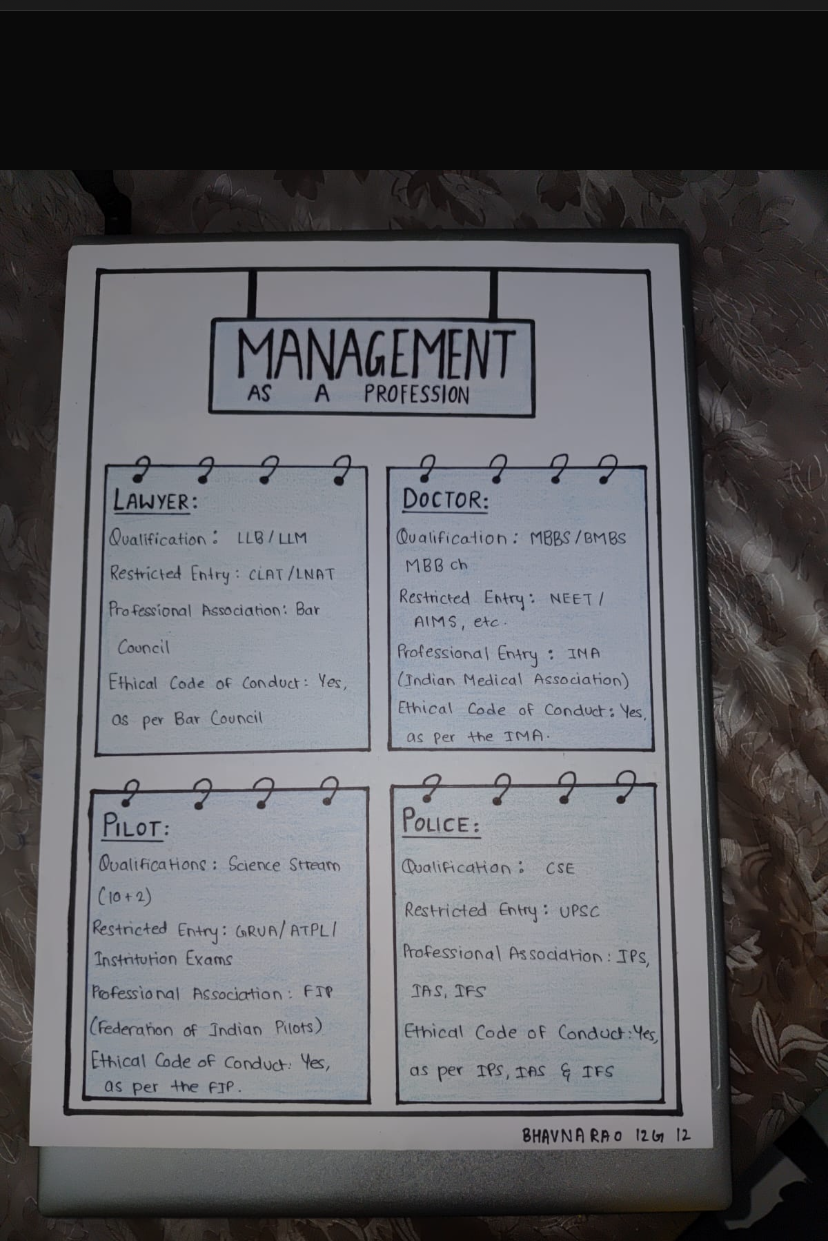 MANAGEMENT
AS A PROFESSION
LAWYER:
Qualification: LLB/LLM
Restricted Entry: CLAT/LNAT
Professional Association: Bar
Council
Ethical Code of Conduct: Yes,
as per Bar Council
DOCTOR:
Qualification: MBBS/BMBS
MBB ch
Restricted Entry: NEET/
AIMS, etc.
Professional Entry: IMA
(Indian Medical Association)
Ethical Code of Conduct: Yes,
as per the IMA.
PILOT:
Qualifications: Science Stream
(10+2)
Restricted Entry: GRUA/ATPL/
Institution Exams
Professional Association: FIP
(Federation of Indian Pilots)
Ethical Code of Conduct: Yes,
as per the FIP.
POLICE:
Qualification: CSE
Restricted Entry: UPSC
Professional Association: IPS,
IAS, IFS
Ethical Code of Conduct: Yes,
as per IPS, IAS & IFS
BHAVNA RAO 12G 12